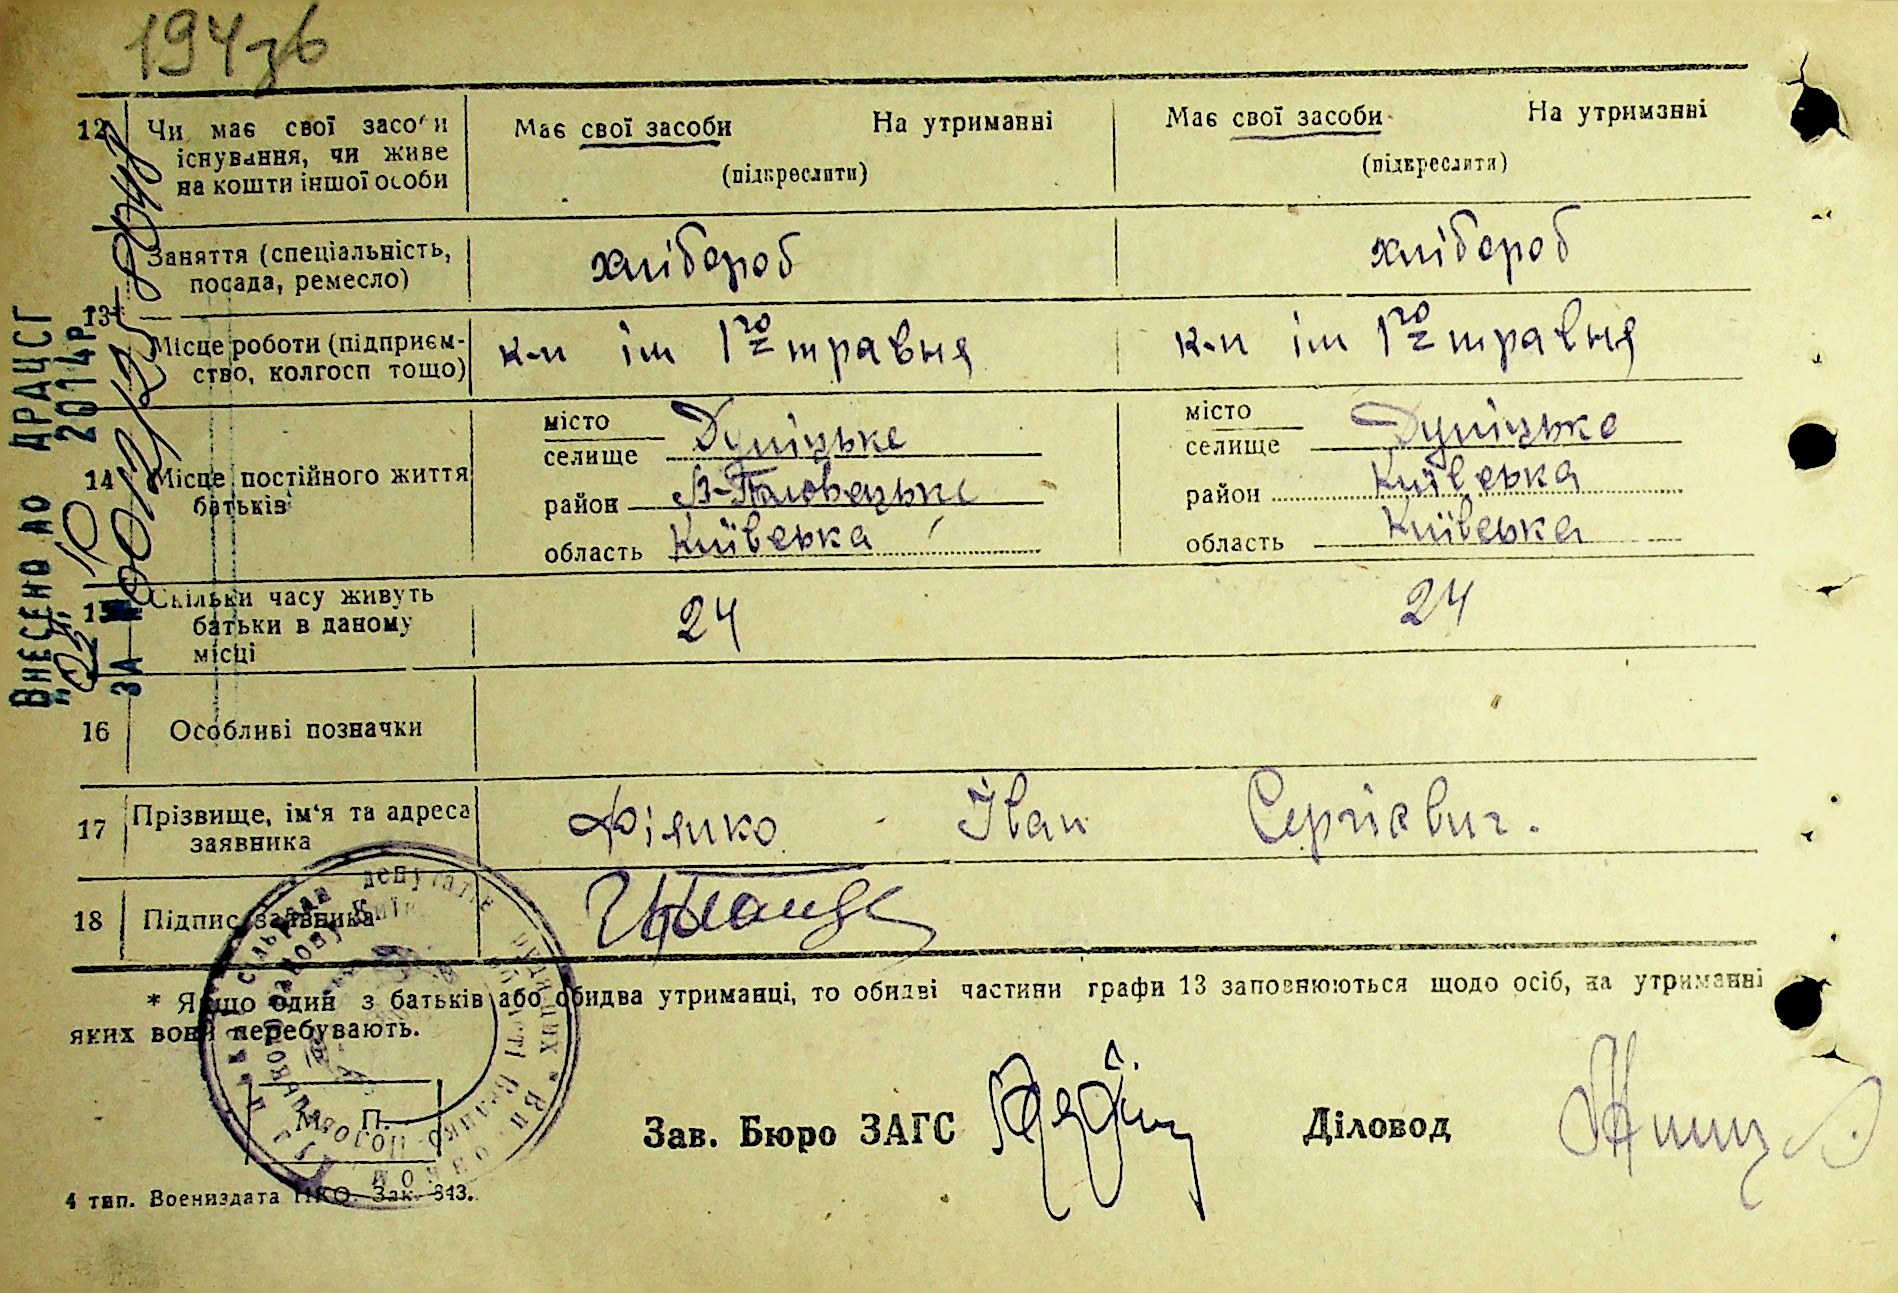 194зв
12 Чи має свої засоби Має свої засоби На утриманні Має свої засоби На утриманні
існування, чи живе
на кошти іншої особи (підкреслити) (підкреслити)
Заняття (спеціальність, хлібороб хлібороб
посада, ремесло)
13
Місце роботи (підприєм- к-п ім 1го травня к-п ім 1го травня
ство, колгосп тощо)
місто місто
селище селище
14 Місце постійного життя район район
батьків Київська Київська
область Київська область Київська
15 Скільки часу живуть 24 24
батьки в даному
місці
16 Особливі позначки
17 Прізвище, ім'я та адреса Іван Сергієвич.
заявника
18 Підпис заявника
* Якщо один з батьків або обидва утриманці, то обидві частини графи 13 заповнюються щодо осіб, на утриманні
яких вони перебувають.
М. П.
Зав. Бюро ЗАГС Діловод
4 тип. Воениздата НКО. Зак. 343.
Внесено до ДРАЦСГ
2014р.
за №